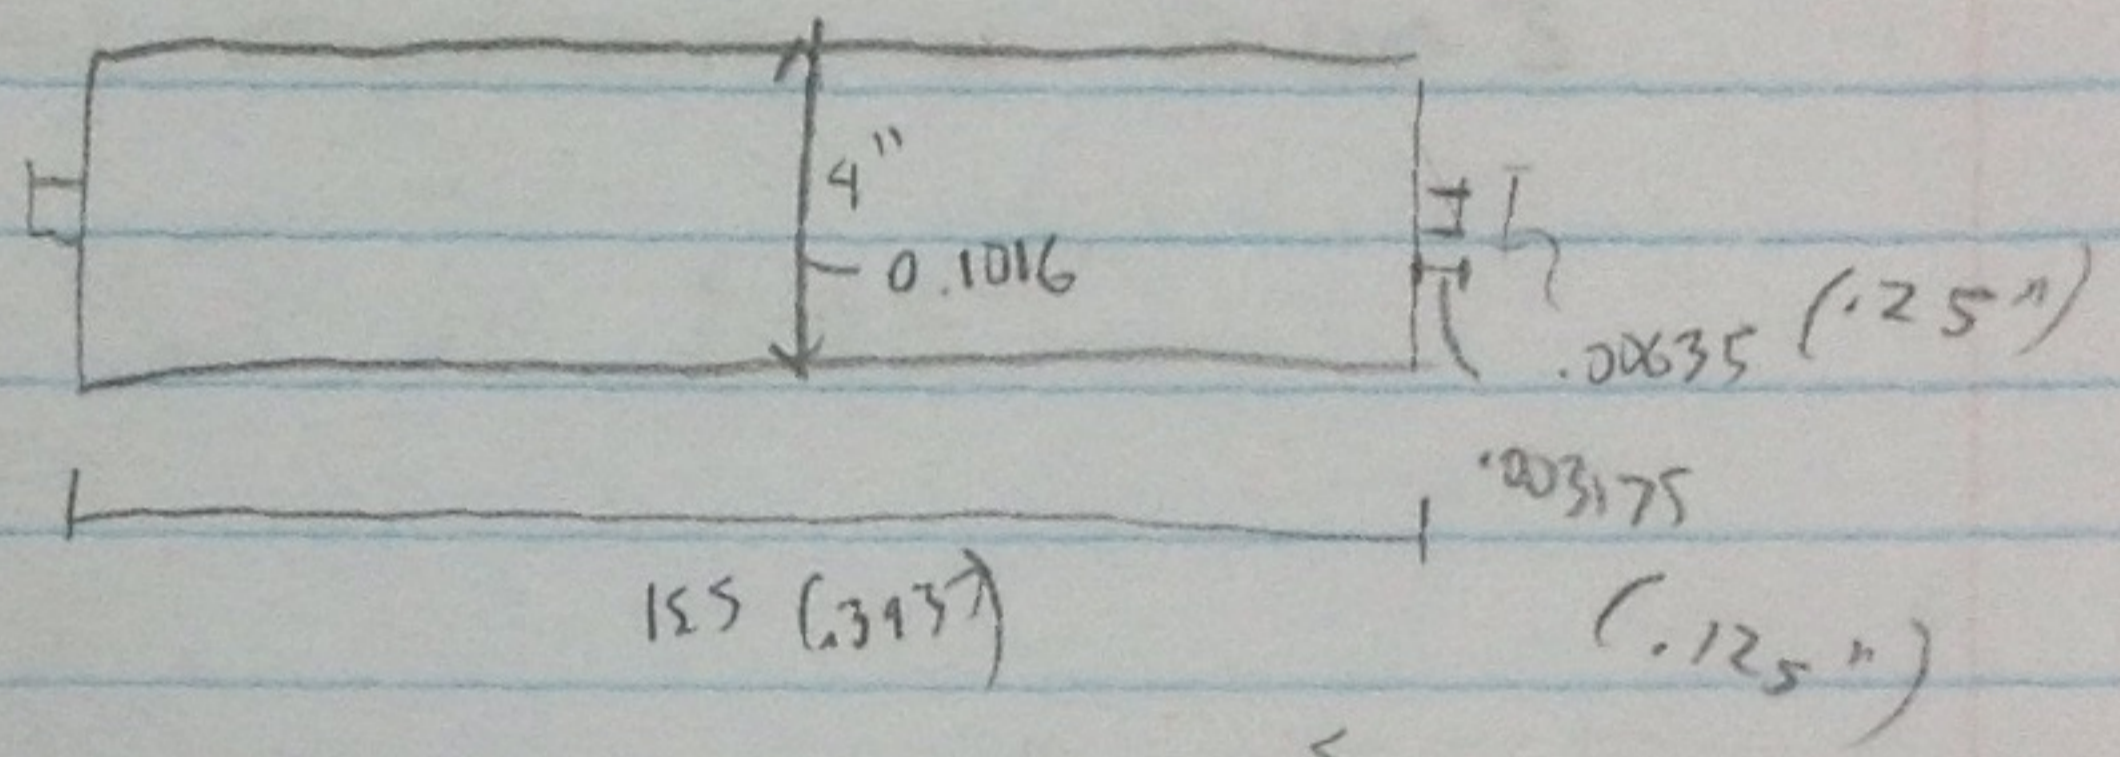 4"
0.1016
.00635 (.25")
.003175
(.125")
15.5 (.3937)